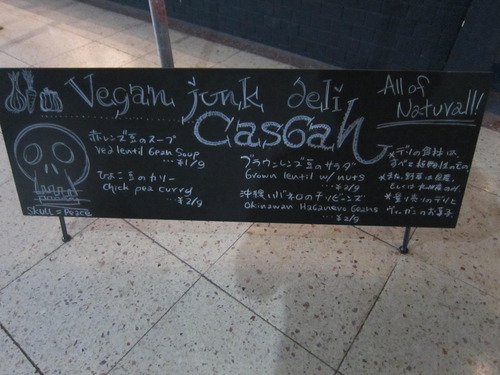 Vegan junk deli
Casbah
All of
Natural!!
赤レンズ豆のスープ
red lentil bean soup
...¥1/9
ひよこ豆のカリー
chick pea curry
...¥2/9
Skull = Peace
ブラウンレンズ豆のサラダ
brown lentil w/ nuts
...¥2/9
沖縄ハバネロのチリビーンズ
Okinawan Habanero beans
...¥2/9
*デリの食材は、
すべて植物性のもの。
*量り売りのデリと
ヴィーガンのお菓子